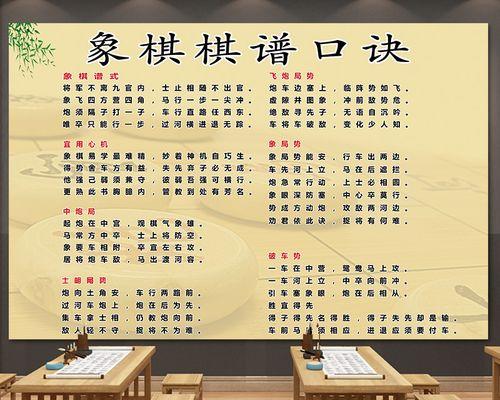 象棋棋谱口诀
象棋谱式
将军不离九宫内，士止相随不出官。
象飞四方营四角，马行一步一尖冲。
炮须隔子打一子，车行直路任西东。
唯卒只能行一步，过河横进退无踪。
宜用心机
象棋易学最难精，妙着神机自巧生。
得势舍车方有益，失先弃子必无成。
他强己弱须兼守，彼弱吾强可横行。
更熟此书胸臆内，管教到处有芳名。
中炮局
起炮在中宫，观棋气象雄。
马常方中卒，士上将防空。
象要车相附，卒宜左右攻。
居将炮车敌，马出渡河容。
士明局势
炮向士角安，车行两路前。
过河车炮上，炮在后为先。
集车拿士相，仍教炮向前。
敌人轻不守，捉将不为难。
飞炮局势
炮车边塞上，临阵势如飞。
虚隙井图象，冲前敌势危。
绝敌寻先子，无语自沉吟。
车将车破敌，变化少人知。
象局势
象局势能安，行车出两边。
车先河上立，马在后遮拦。
炮急常行动，士上必相圆。
象眼深防塞，中心卒莫行。
势成方动炮，攻敌两河边。
劝君依此诀，捉将有何难。
破车势
一车在中营，鸳鸯马上攻。
一车河上立，中卒向前冲。
引车塞象眼，炮在后相从。
胜宜得先
得子得先名得胜，得子失先却是输。
车前马前须相应，进退应须要付车。